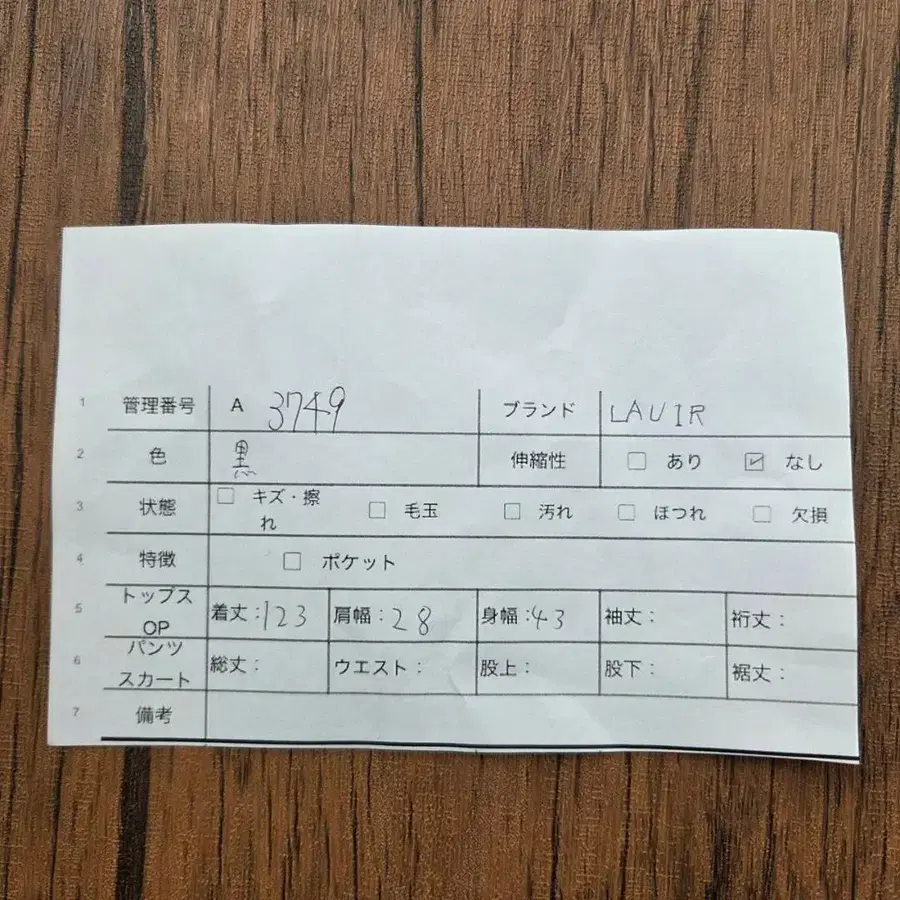 1 管理番号 A 3749 ブランド LAUIR
2 色 黒 伸縮性 □ あり ☑ なし
3 状態 □ キズ・擦れ □ 毛玉 □ 汚れ □ ほつれ □ 欠損
4 特徴 □ ポケット
5 トップス OP 着丈：123 肩幅：28 身幅：43 袖丈： 裄丈：
6 パンツ スカート 総丈： ウエスト： 股上： 股下： 裾丈：
7 備考